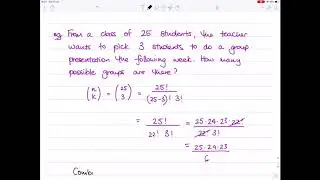 eg From a class of 25 students, the teacher
wants to pick 3 students to do a group
presentation the following week. How many
possible groups are there?
(n k) = (25 3) = 25! / (25-3)! 3!
= 25! / 22! 3! = 25·24·23·22! / 22! 3!
= 25·24·23 / 6
Combi